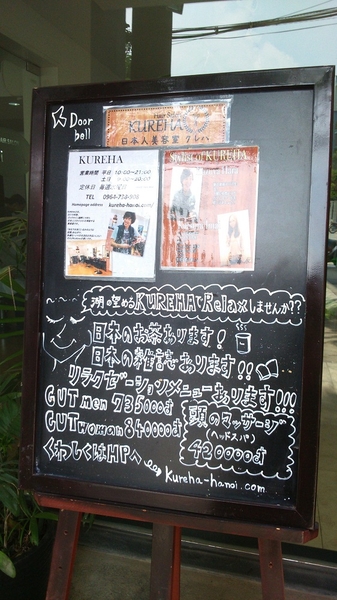 Door
bell
HAIR SALON
KUREHA
日本人美容室 クレハ
KUREHA
営業時間 平日 10:00~21:00
定休日 毎週
TEL
Homepage address kureha-hanoi.com/
Stylist of KUREHA
湖の望めるKUREHAでRelaxしませんか??
日本のお茶あります!
日本の雑誌あります!!
リラクゼーションメニューあります!!!
CUT men 735000đ
CUT woman 840000đ
頭のマッサージ
(ヘッドスパ)
420000đ
くわしくはHPへ
kureha-hanoi.com